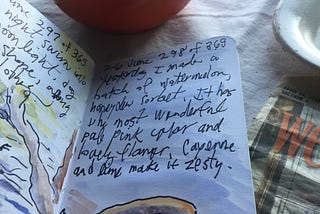 297 of 365
night swim
moon light,
26 June 298 of 365
yesterday I made a
batch of watermelon,
honeydew sorbet. It has
the most wonderful
pale pink color and
lovely flavor. Cayenne
and lime make it zesty.